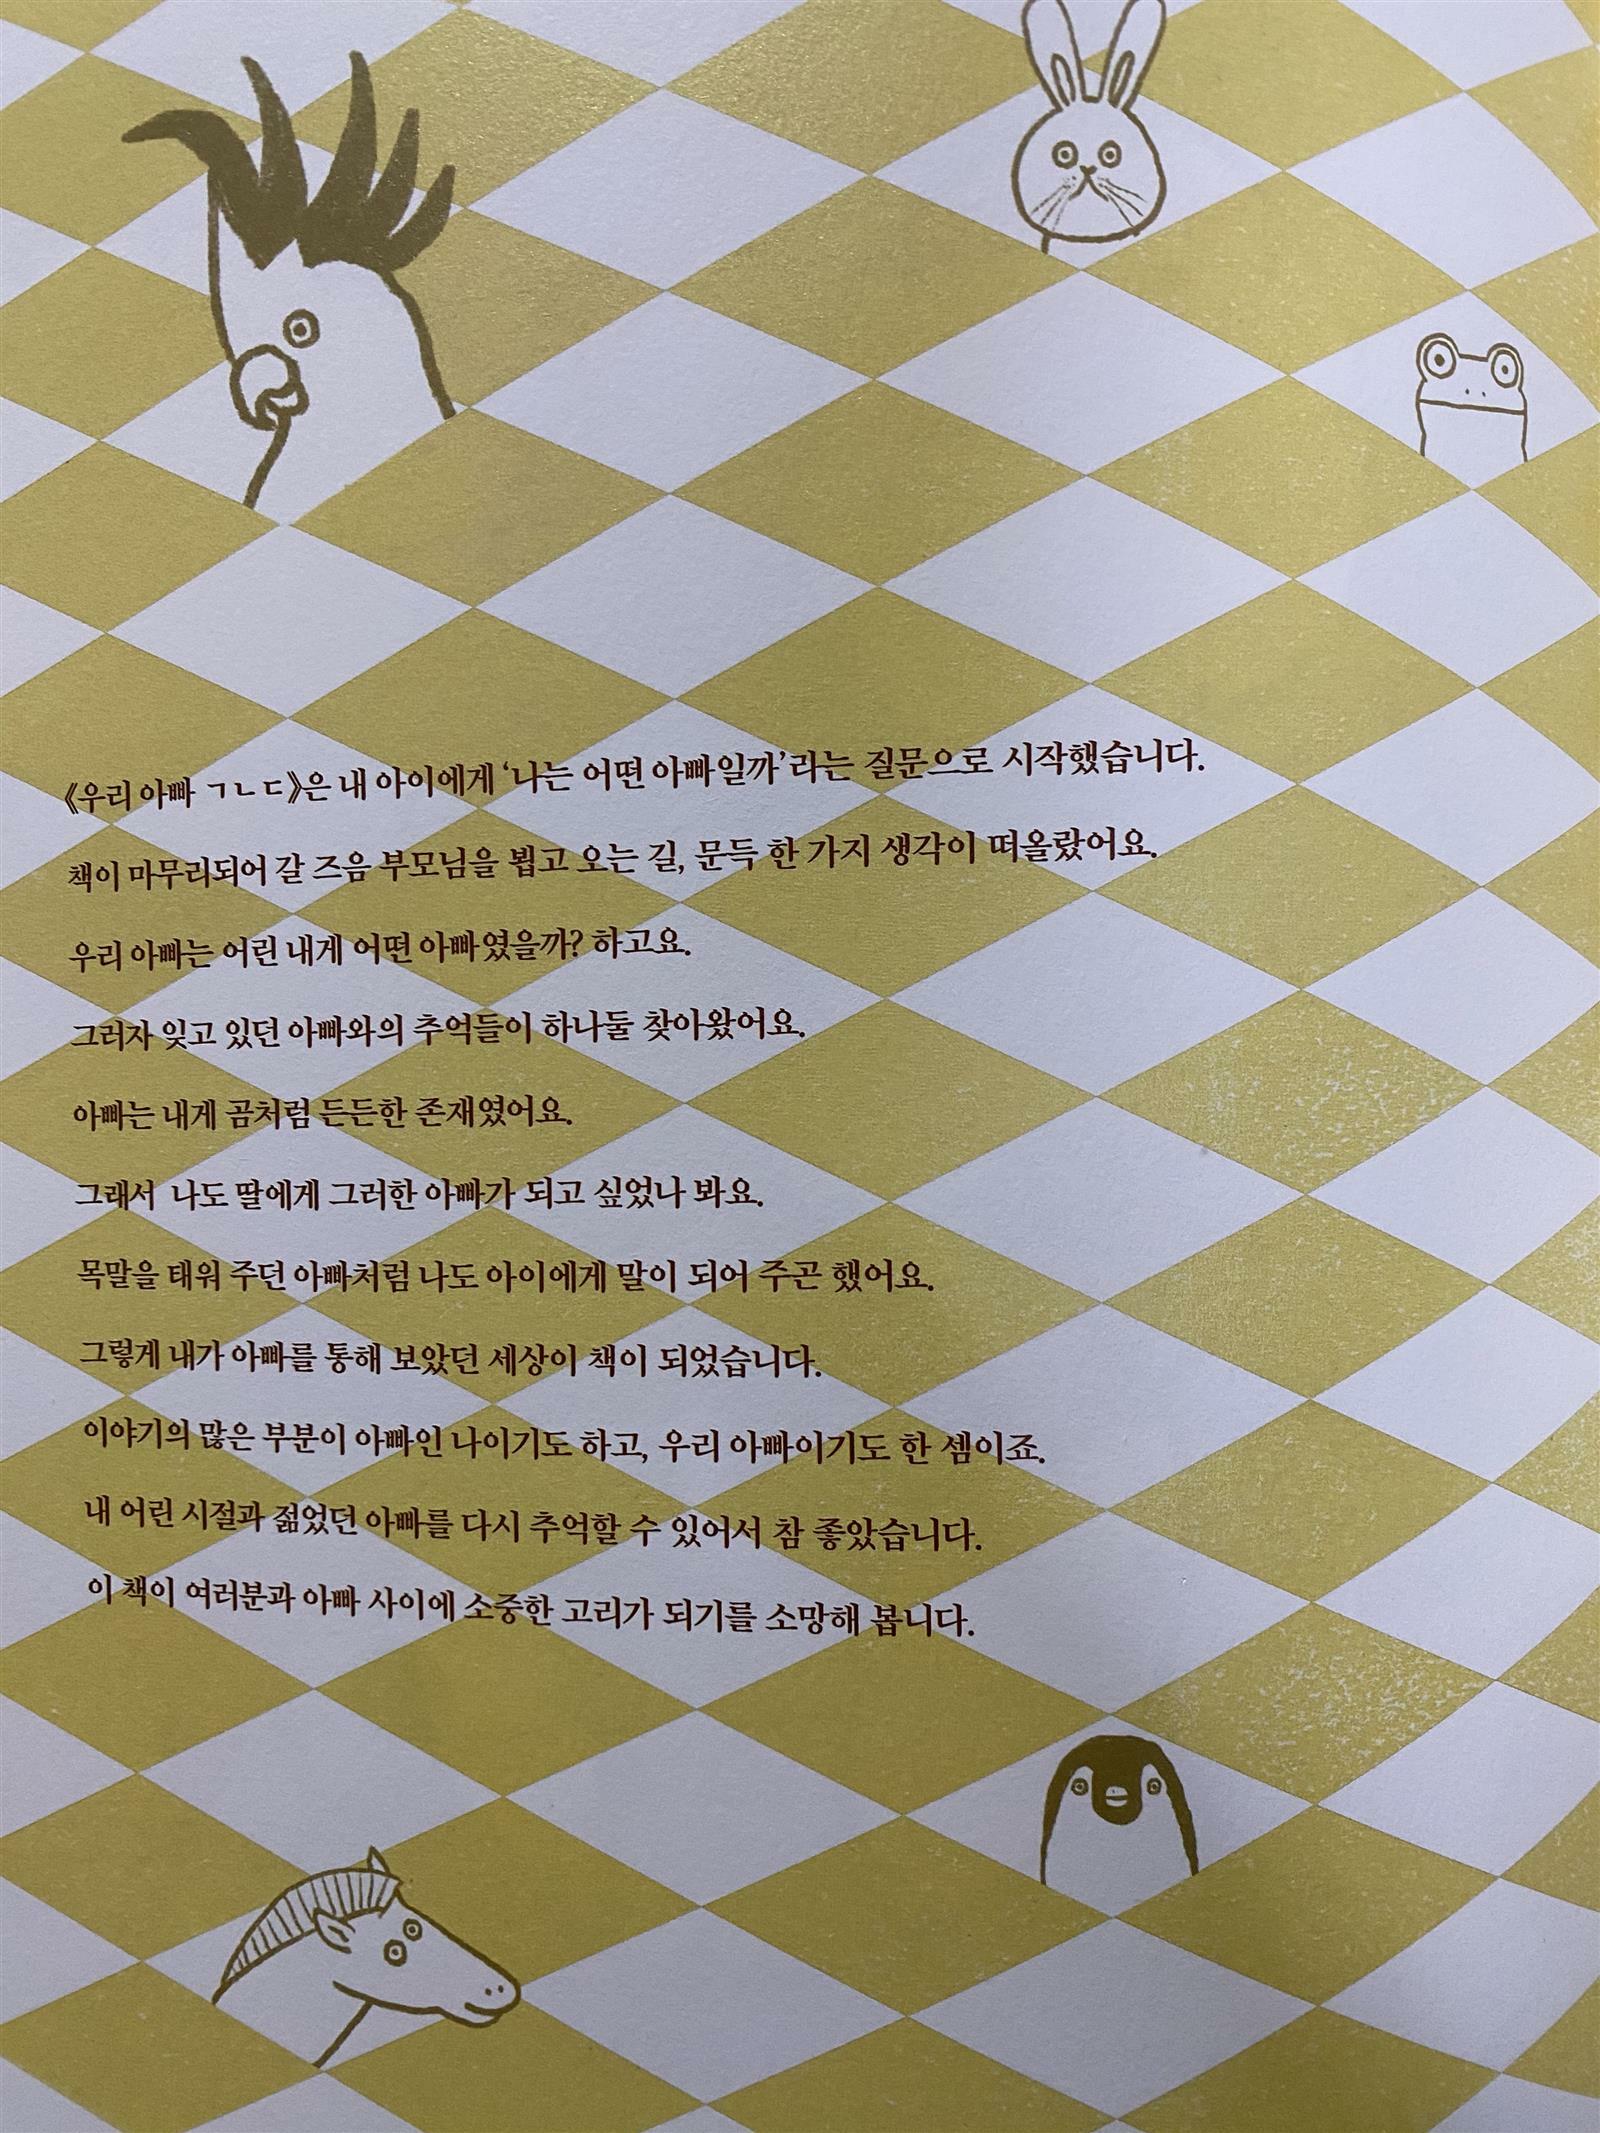 《우리 아빠 ㄱㄴㄷ》은 내 아이에게 ‘나는 어떤 아빠일까’라는 질문으로 시작했습니다.
책이 마무리되어 갈 즈음 부모님을 뵙고 오는 길, 문득 한 가지 생각이 떠올랐어요.
우리 아빠는 어린 내게 어떤 아빠였을까? 하고요.
그러자 잊고 있던 아빠와의 추억들이 하나둘 찾아왔어요.
아빠는 내게 곰처럼 든든한 존재였어요.
그래서 나도 딸에게 그러한 아빠가 되고 싶었나 봐요.
목말을 태워 주던 아빠처럼 나도 아이에게 말이 되어 주곤 했어요.
그렇게 내가 아빠를 통해 보았던 세상이 책이 되었습니다.
이야기의 많은 부분이 아빠인 나이기도 하고, 우리 아빠이기도 한 셈이죠.
내 어린 시절과 젊었던 아빠를 다시 추억할 수 있어서 참 좋았습니다.
이 책이 여러분과 아빠 사이에 소중한 고리가 되기를 소망해 봅니다.